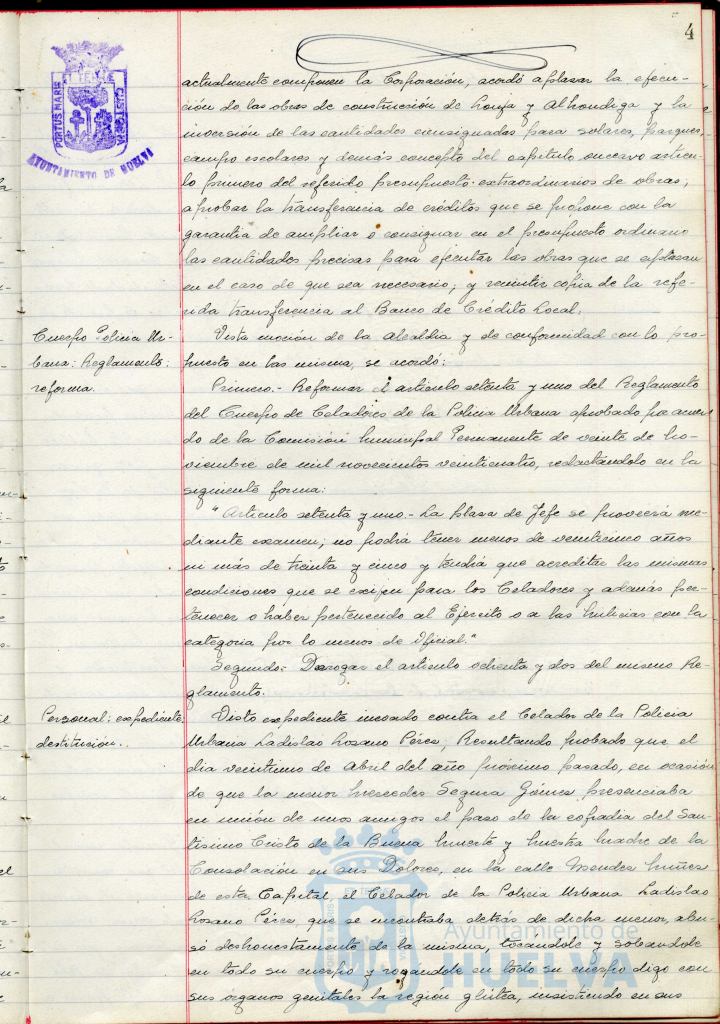 4
PORTUS MARIS ET TERRE CUSTODIA
AYUNTAMIENTO DE HUELVA
actualmente componen la Corporación, acordó aplazar la ejecu-
ción de las obras de construcción de Lonja y Alhondiga y la
inversión de las cantidades consignadas para solares, parques,
campo escolares y demás concepto del capitulo onceavo articu-
lo primero del referido presupuesto extraordinarios de obras;
aprobar la transferencia de créditos que se propone con la
garantia de ampliar o consignar en el presupuesto ordinario
las cantidades precisas para ejecutar las obras que se aplazan
en el caso de que sea necesario; y remitir copia de la refe-
rida transferencia al Banco de Crédito Local.
Cuerpo Policia Ur-
bana: Reglamento:
reforma.
Vista moción de la Alcaldia y de conformidad con lo pro-
puesto en las misma, se acordó:
Primero.- Reformar el articulo setenta y uno del Reglamento
del Cuerpo de Celadores de la Policia Urbana aprobado por acuer-
do de la Comisión Municipal Permanente de veinte de No-
viembre de mil novecientos veinticuatro, redactándolo en la
siguiente forma:
"Articulo setenta y uno.- La plaza de Jefe se proveerá me-
diante examen; no podrá tener menos de veinticinco años
ni más de treinta y cinco y tendrá que acreditar las mismas
condiciones que se exijen para los Celadores y además per-
tenecer o haber pertenecido al Ejército o a las Milicias con la
categoria por lo menos de Oficial."
Segundo: Derogar el articulo ochenta y dos del mismo Re-
glamento.
Personal: expediente:
destitución.
Visto expediente incoado contra el Celador de la Policia
Urbana Ladislao Lozano Pérez; Resultando probado que el
dia veintiuno de Abril del año próximo pasado, en ocasión
de que la menor Mercedes Segura Gómez presenciaba
en unión de unos amigos el paso de la cofradia del San-
tisimo Cristo de la Buena Muerte y Nuestra Madre de la
Consolación en sus Dolores, en la calle Mendez Nuñez
de esta Capital, el Celador de la Policia Urbana Ladislao
Lozano Pérez, que se encontraba detrás de dicha menor, abu-
só deshonestamente de la misma, tocandole y sobandole
en todo su cuerpo y rozándole en todo su cuerpo digo con
sus órganos genitales la región glútea, insistiendo en sus
Ayuntamiento de
HUELVA